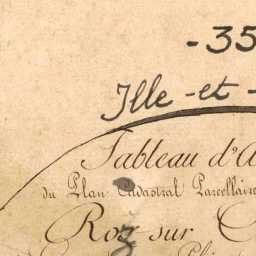 - 35
Ille - et -
Tableau d'A
du Plan Cadastral Parcellaire
Roz sur C